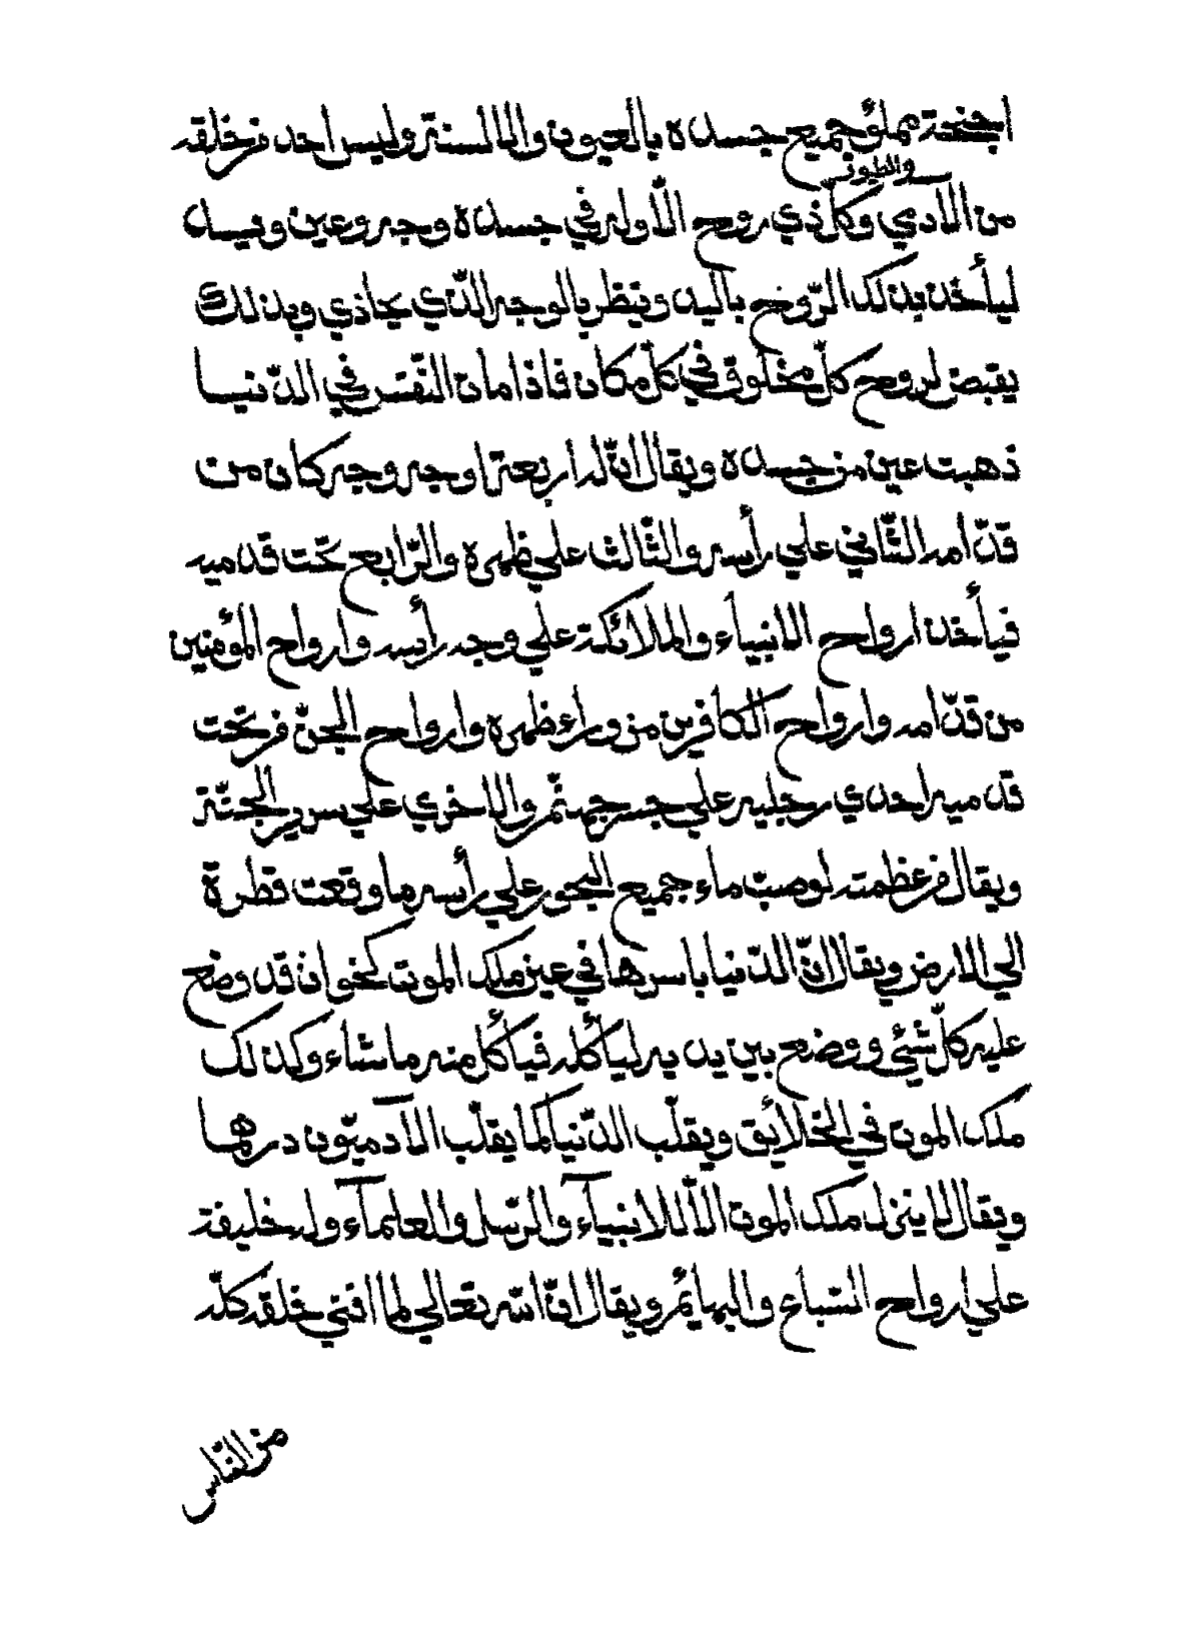 اجنحة مملؤ جميع جسده بالعيون والالسنة وليس احد من خلقه
والطيور
من الآدمي وكل ذي روح الّا وله في جسده وجه وعين ويد
ليأخذ بذلك الرّوح باليد وينظر بالوجه الّذي يحاذي وبذلك
يقبض روح كلّ مخلوق في كلّ مكان فاذا مات النّفس في الدّنيا
ذهبت عين من جسده ويقال انّ له اربعة اوجه وجه كان من
قدّامه الثّاني علي رأسه والثّالث علي ظهره والرّابع تحت قدميه
فيأخذ ارواح الانبياء والملائكة علي وجه رأسه وارواح المؤمنين
من قدّامه وارواح الكافرين من وراء ظهره وارواح الجنّ من تحت
قدميه احدي رجليه علي جسر جهنّم والاخري علي سرير الجنّة
ويقال من عظمته لو صبّ ماء جميع البحور علي رأسه ما وقعت قطرة
الي الارض ويقال انّ الدّنيا باسرها في عين ملك الموت كخوان قد وضع
عليه كلّ شيئ ووضع بين يديه ليأكله فيأكل منه ما شاء وكذلك
ملك الموت في الخلائق ويقلّب الدّنيا كما يقلّب الآدميّون درهما
ويقال لا ينزل ملك الموت الّا للانبيآء والرّسل والعلمآء وله خليفة
علي ارواح السّباع والبهائم ويقال انّ اللّه تعالي لما افني خلقه كلّه
من النّاس